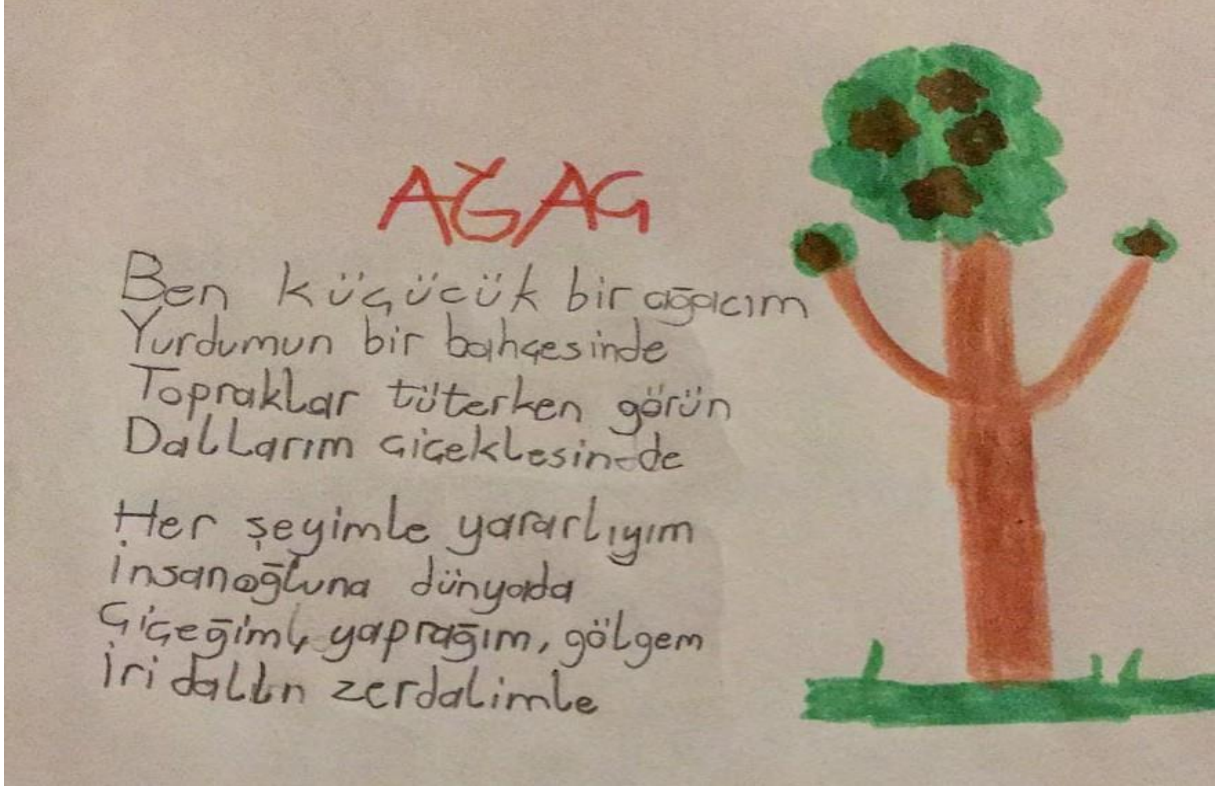 AĞAÇ
Ben küçücük bir ağacım
Yurdumun bir bahçesinde
Topraklar tüterken görün
Dallarım çiçeklesin-de
Her şeyimle yararlıyım
İnsanoğluna dünyada
Çiçeğim, yaprağım, gölgem
İri zerdalimle